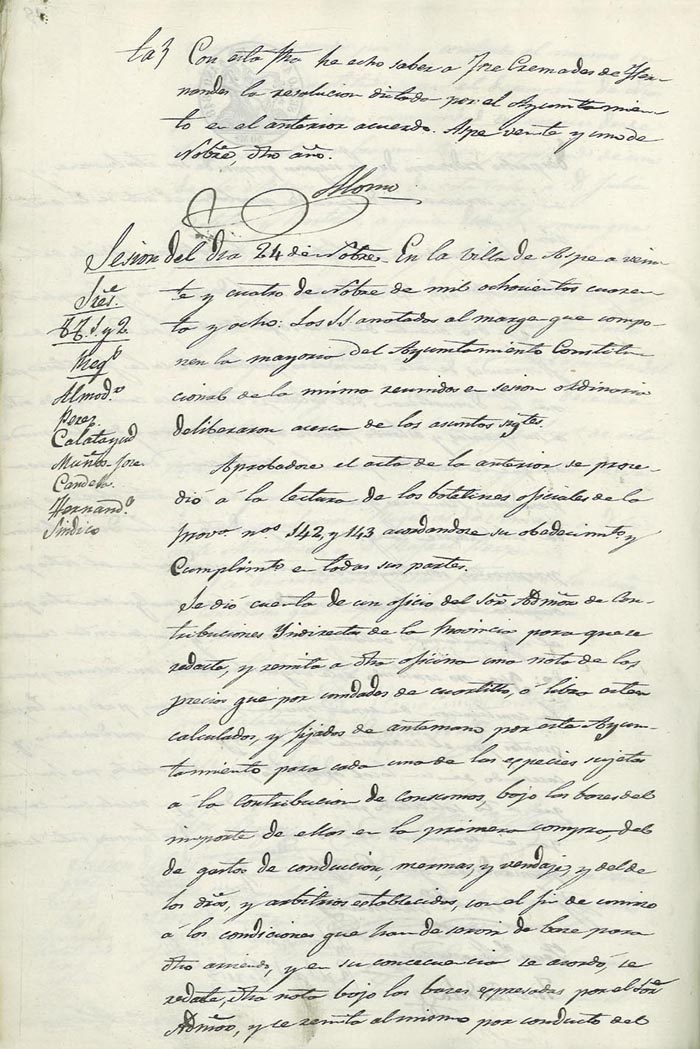 Con esta fha he echo saber a Jose Cremades de Her-
nandes la resolucion dictada por el Ayuntamien-
to en el anterior acuerdo. Aspe vente y uno de
Nobre, dho año.
Alonso
Sesion del dia 24 de Nobre. En la Villa de Aspe a vein-
te y cuatro de Nobre de mil ochocientos cuaren-
ta y ocho: Los SS. anotados al marge que compo-
nen la mayoria del Ayuntamiento Constitu-
cional de la misma reunidos en sesion ordinaria
deliberaron acerca de los asuntos sigtes.
Sres.
TT. 1. y 2.
Regs
Almodr
Perez
Calatayud
Muñoz Jose
Candela
Hernandz
Sindico
Aprobadose el acta de la anterior se proce-
dió a la lectura de los boletines oficiales de la
prova. nos 142 y 143 acordandose su obedecimto y
Cumplimto en todas sus partes.
Se dió cuenta de un oficio del Sor Admor de Con-
tribuciones Yndirectas de la Provincia para que se
redacte, y remita a dha oficina una nota de los
precios que por unidades de cuartillo, ó libra esten
calculados, y fijados de antemano por este Ayun-
tamiento para cada una de las especies sujetas
á la contribucion de consumos, bajo las bases del
importe de ellas en la primera compra, del
de gastos de conduccion, mermas, y vendaje, y del de
los dros, y arbitrios establecidos, con el fin de unirse
á las condiciones que han de servir de base para
dho arriendo, y en su concecuencia se acordó, se
redacte, dha nota bajo las bases espresadas por el Sor
Admor, y se remita al mismo por conducto del